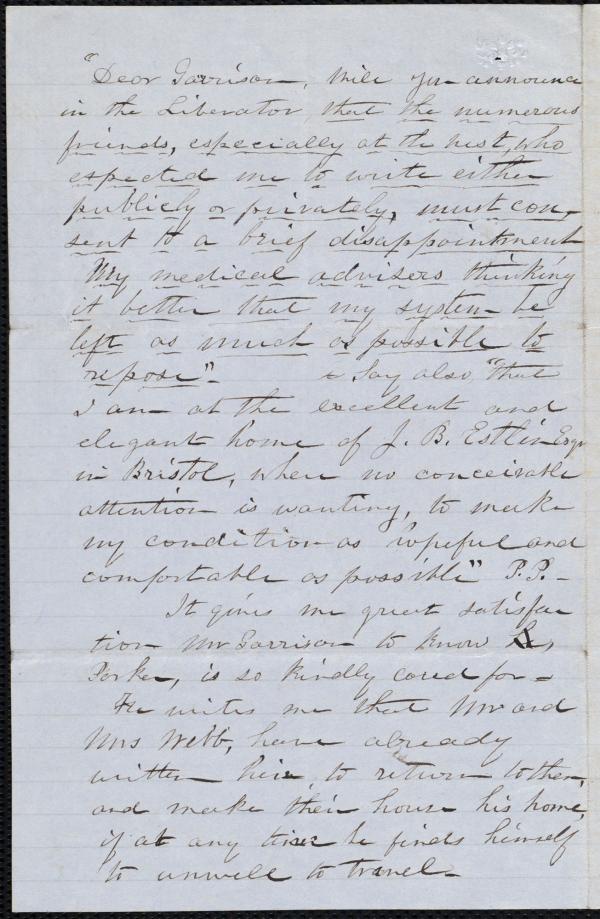 "Dear Garrison, Will you announce
in the Liberator, that the numerous
friends, especially at the west, who
expected me to write either
publicly or privately, must con-
sent to a brief disappointment
My medical advisers thinking
it better that my system be
left as much as possible to
repose"- & Say also, "that
I am at the excellent and
elegant home of J. B. Estlin Esqr
in Bristol, where no conceivable
attention is wanting, to make
my condition as hopeful and
comfortable as possible" P.P.-
It gives me great satisfac
tion Mr Garrison to know
Parker, is so kindly cared for-
He writes me that Mr and
Mrs Webb, have already
written him to return to them
and make their house his home,
if at any time he finds himself
to unwell to travel-